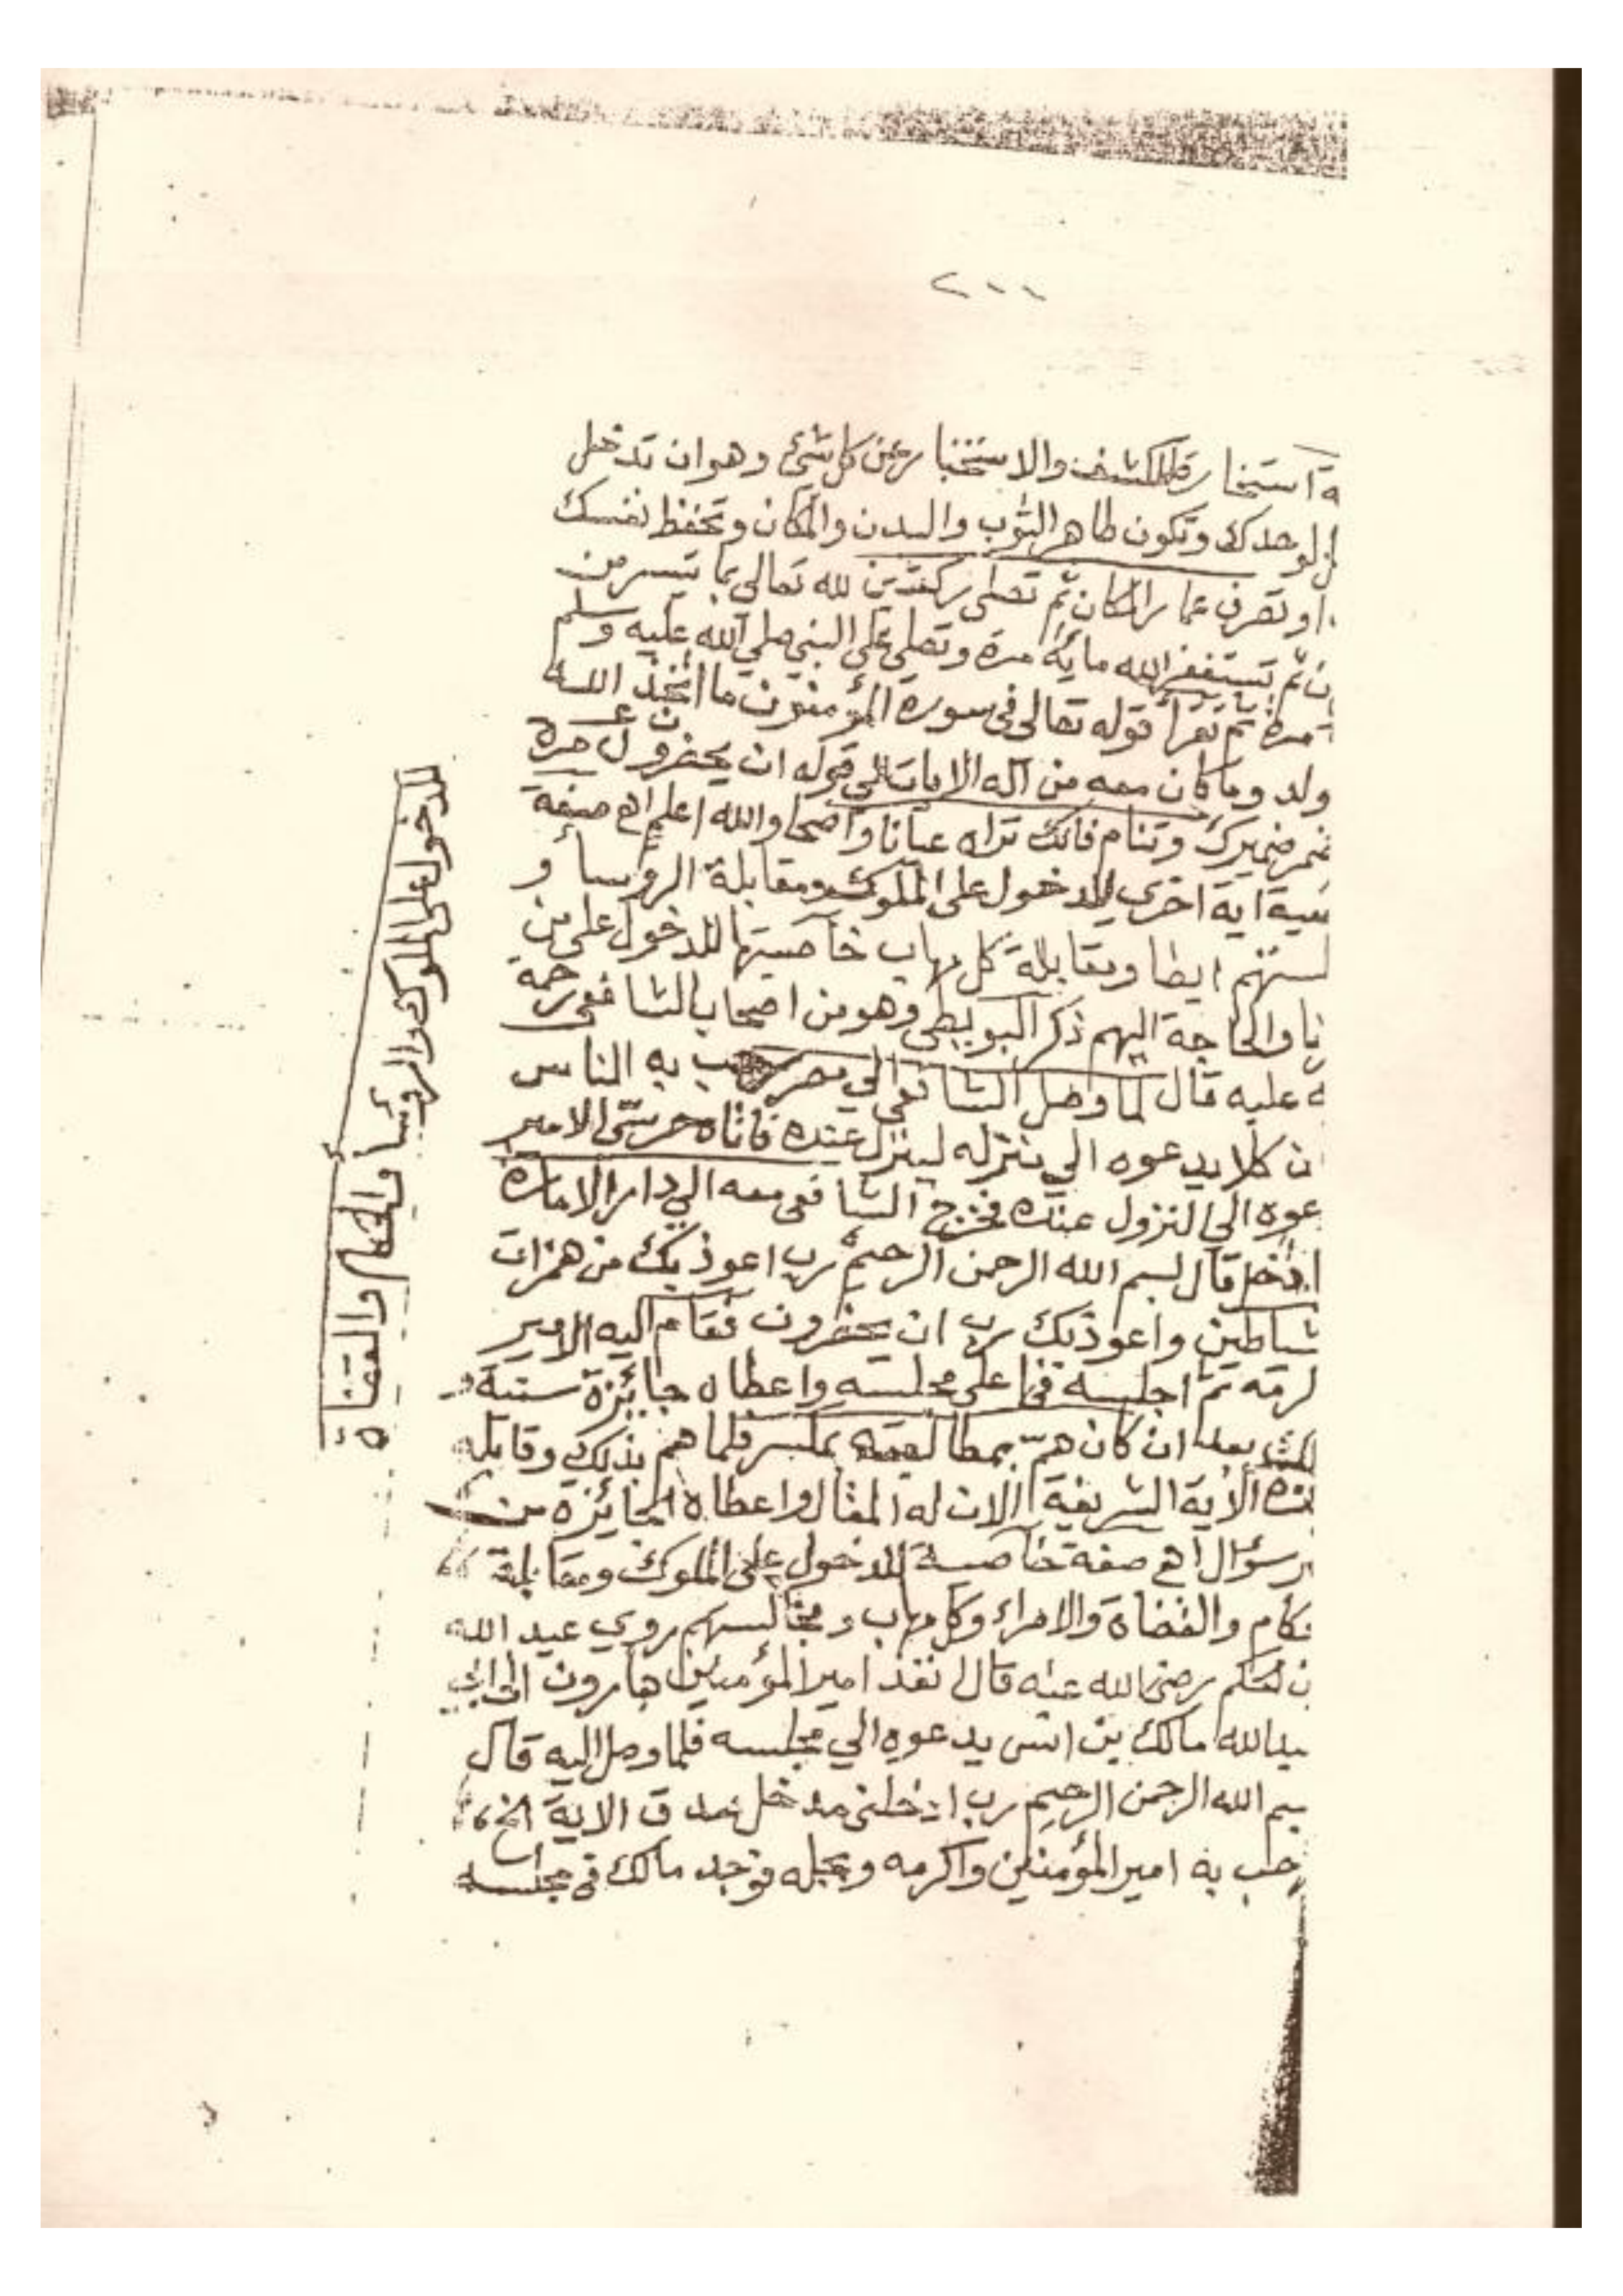 ٢١١
ة استخارة للكشف والاستخبار عن كل شئ وهو ان تدخل
لوحدك وتكون طاهر الثوب والبدن والمكان وتحفظ نفسك
او تصرف عمار المكان ثم تصلى ركعتين لله تعالى بما تيسر من
ن ثم تستغفر الله ماية مرة وتصلي على النبي صلي الله عليه وسلم
مرة ثم تقرأ قوله تعالى فى سورة المؤمنون ما اتخذ الله
ولد وما كان معه من اله الايات الي قوله ان يحضرون مرة
ضميرك وتنام فانك تراه عيانا واضحا والله اعلم اهـ صفة
اية اخرى للدخول على الملوك ومقابلة الروسأ و
ايضا ومقابلة كل مهاب خاصيتها للدخول على من
والحاجة اليهم ذكر البويطى وهو من اصحاب الشافعى رحمة
ه عليه قال لما وصل الشافعى الي مصر به الناس
ن كلا يدعوه الي منزله لينزل عنده فاتاه حرسى الامير
عوه الي النزول عنده فخرج الشافعى معه الي دار الامارة
ادخل قال بسم الله الرحمن الرحيم رب اعوذ بك من همزات
شياطين واعوذ بك رب ان يحضرون فقام اليه الامير
ثم اجلسه على مجلسه واعطاه جايزة سنية
بعد ان كان همّ فلما هم بذلك وقابله
الاية الشريفة الان له المقال واعطاه الجائزة من
سؤال اهـ صفة خاصية للدخول على الملوك ومقابلة
كام والقضاة والامراء وكل مهاب ومجالسهم روي عبد الله
ن الحكم رضى الله عنه قال انفذ امير المؤمنين هارون الى ابي
بد الله مالك بن انس يدعوه الي مجلسه فلما وصل اليه قال
بسم الله الرحمن الرحيم رب ادخلنى مدخل صدق الاية الخ
رحب به امير المؤمنين واكرمه وبجله فوجد مالك فى مجلسه
للدخول على الملوك والروسأ والحكام والقضاة